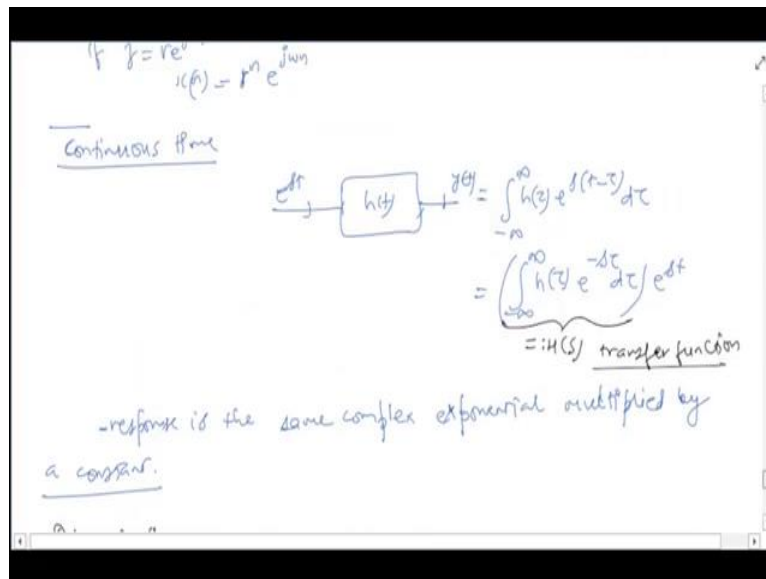 If z = re^j
x(n) = r^n e^{jωn}
Continuous time
e^{st} → h(t) → y(t) = ∫_{-∞}^{∞} h(τ) e^{s(t-τ)} dτ
= (∫_{-∞}^{∞} h(τ) e^{-sτ} dτ) e^{st}
=: H(s) transfer function
-response is the same complex exponential multiplied by
a constant.